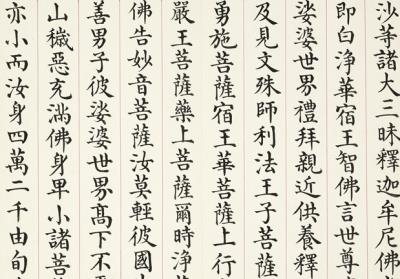 沙等諸大三昧釋迦牟尼佛
即白淨華宿王智佛言世尊
娑婆世界禮拜親近供養釋
及見文殊師利法王子菩薩
勇施菩薩宿王華菩薩上行
嚴王菩薩藥上菩薩爾時淨
佛告妙音菩薩汝莫輕彼國
善男子彼娑婆世界髙下不
山穢惡充滿佛身卑小諸菩
亦小而汝身四萬二千由旬